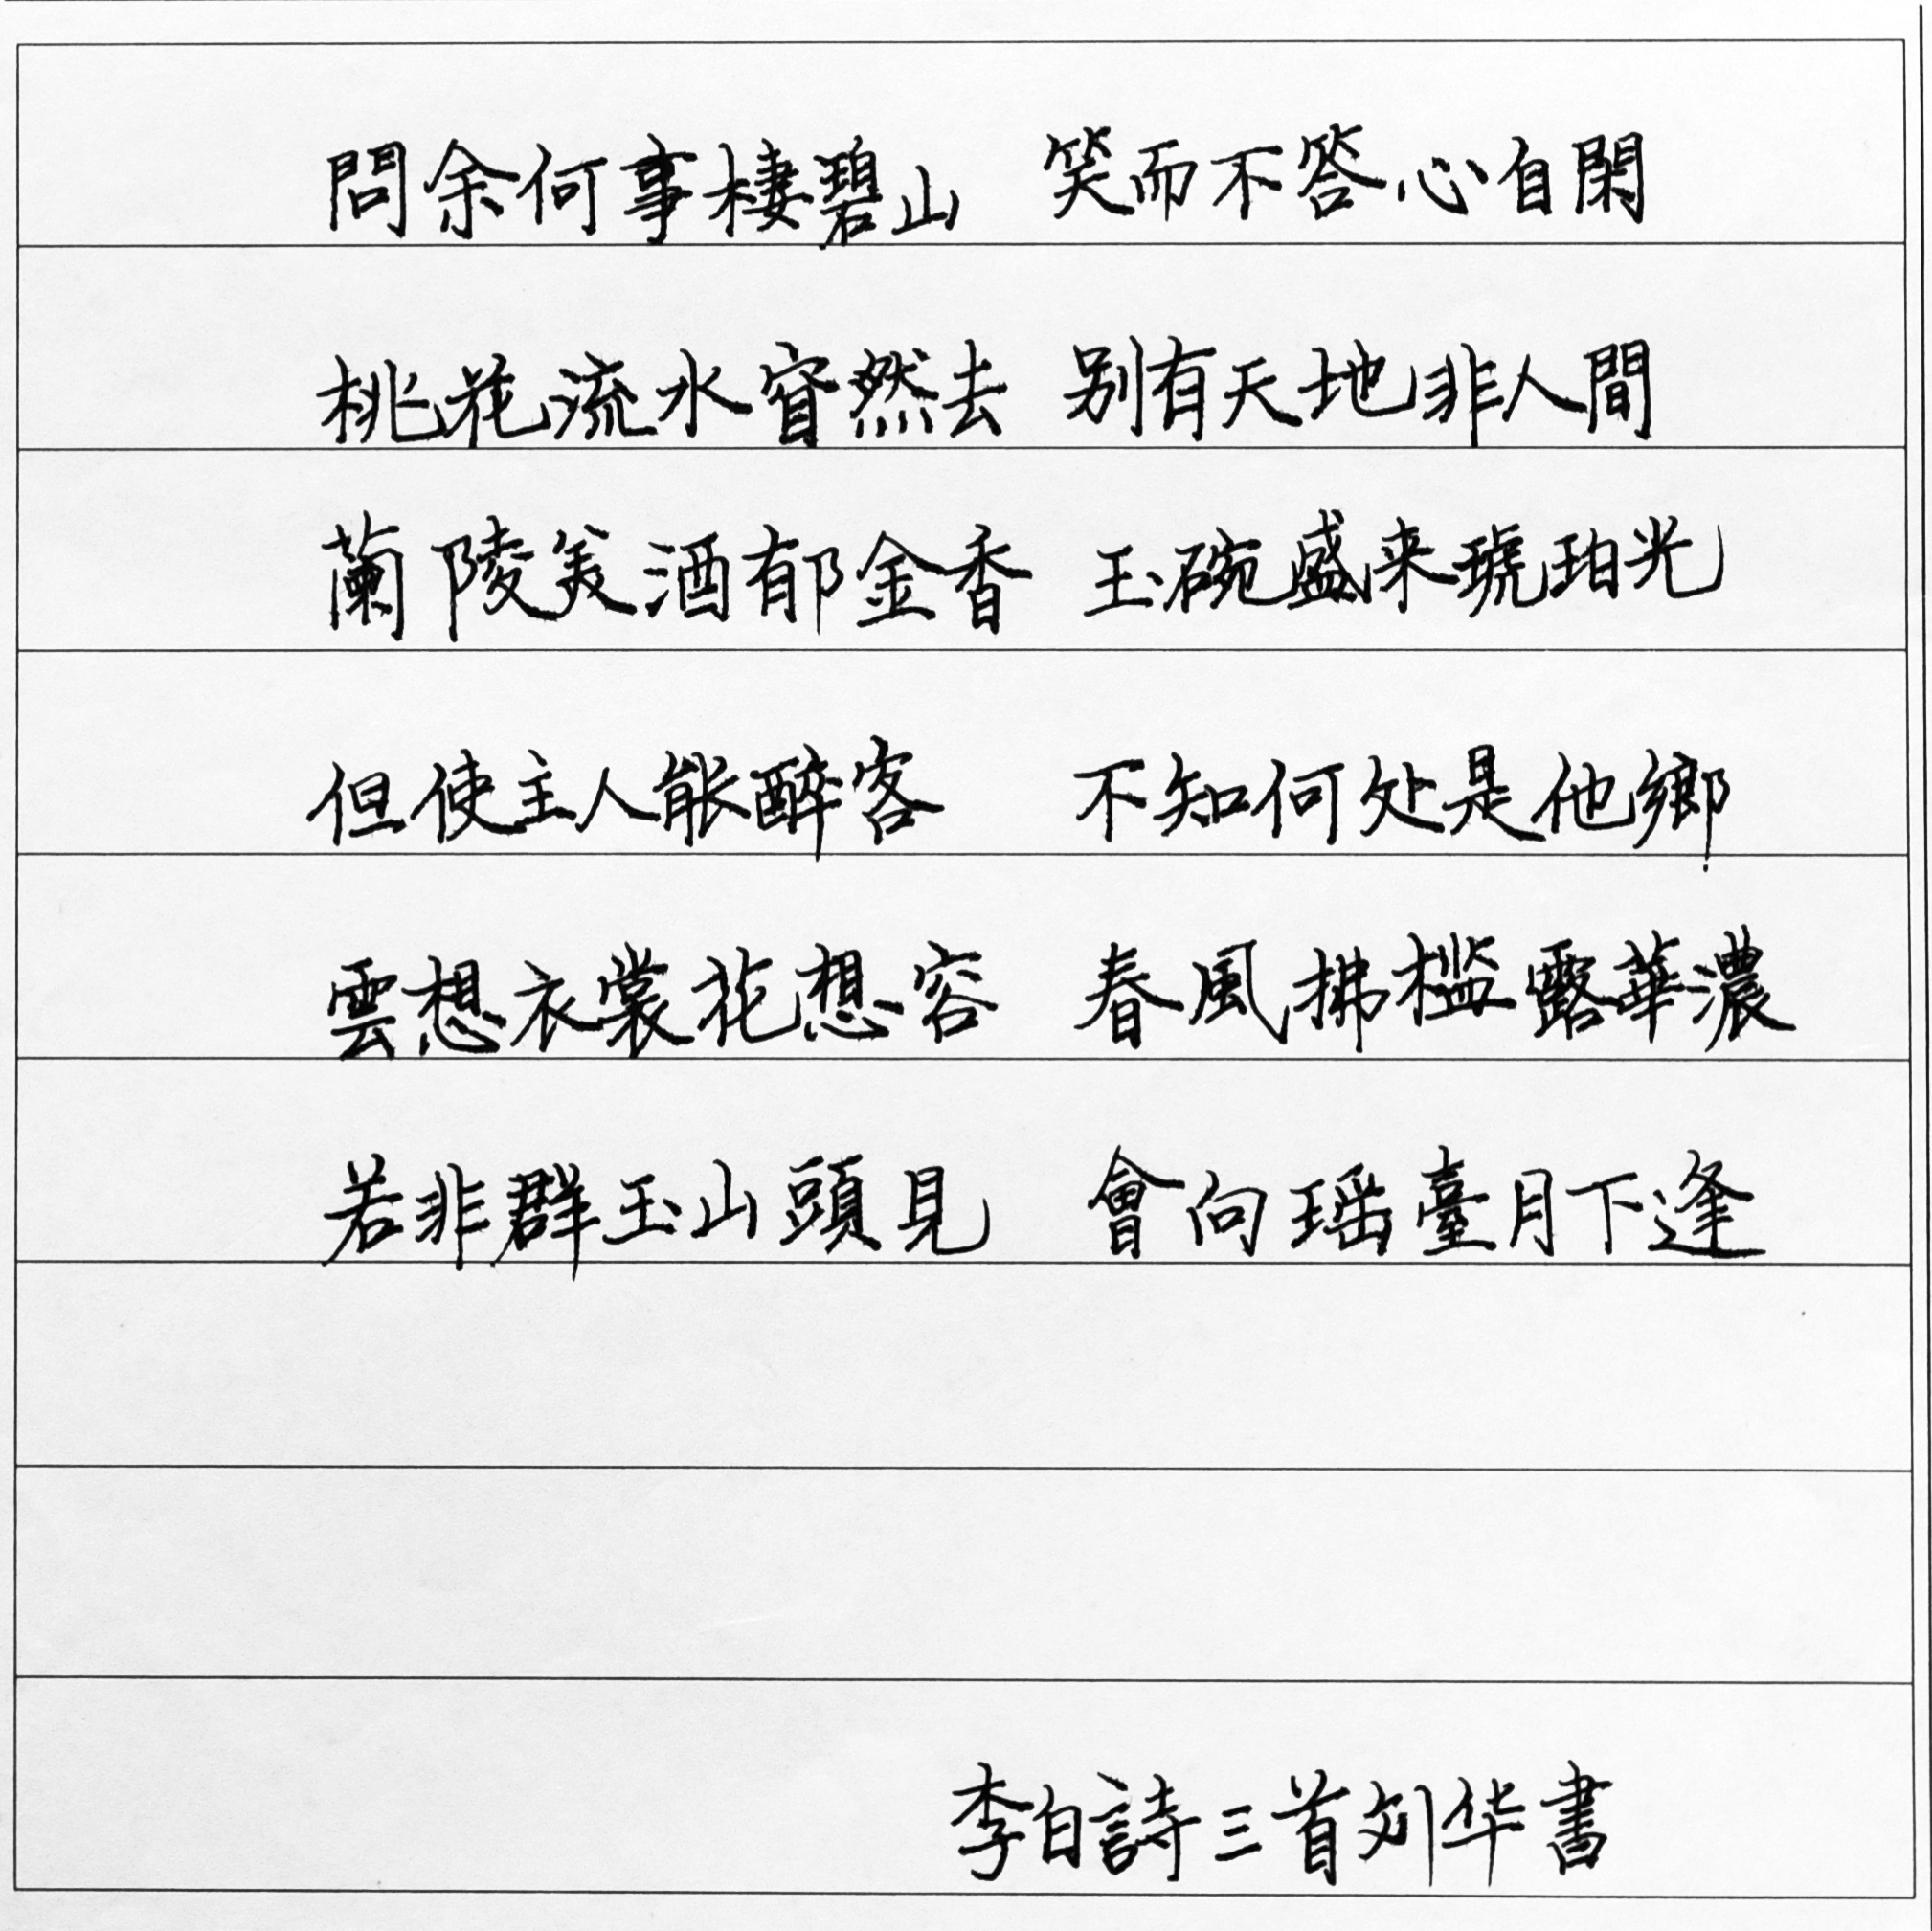 問余何事棲碧山 笑而不答心自閑
桃花流水窅然去 别有天地非人間
蘭陵美酒郁金香 玉碗盛来琥珀光
但使主人能醉客 不知何处是他鄉
雲想衣裳花想容 春風拂檻露華濃
若非群玉山頭見 會向瑶臺月下逢
李白詩三首刘华書